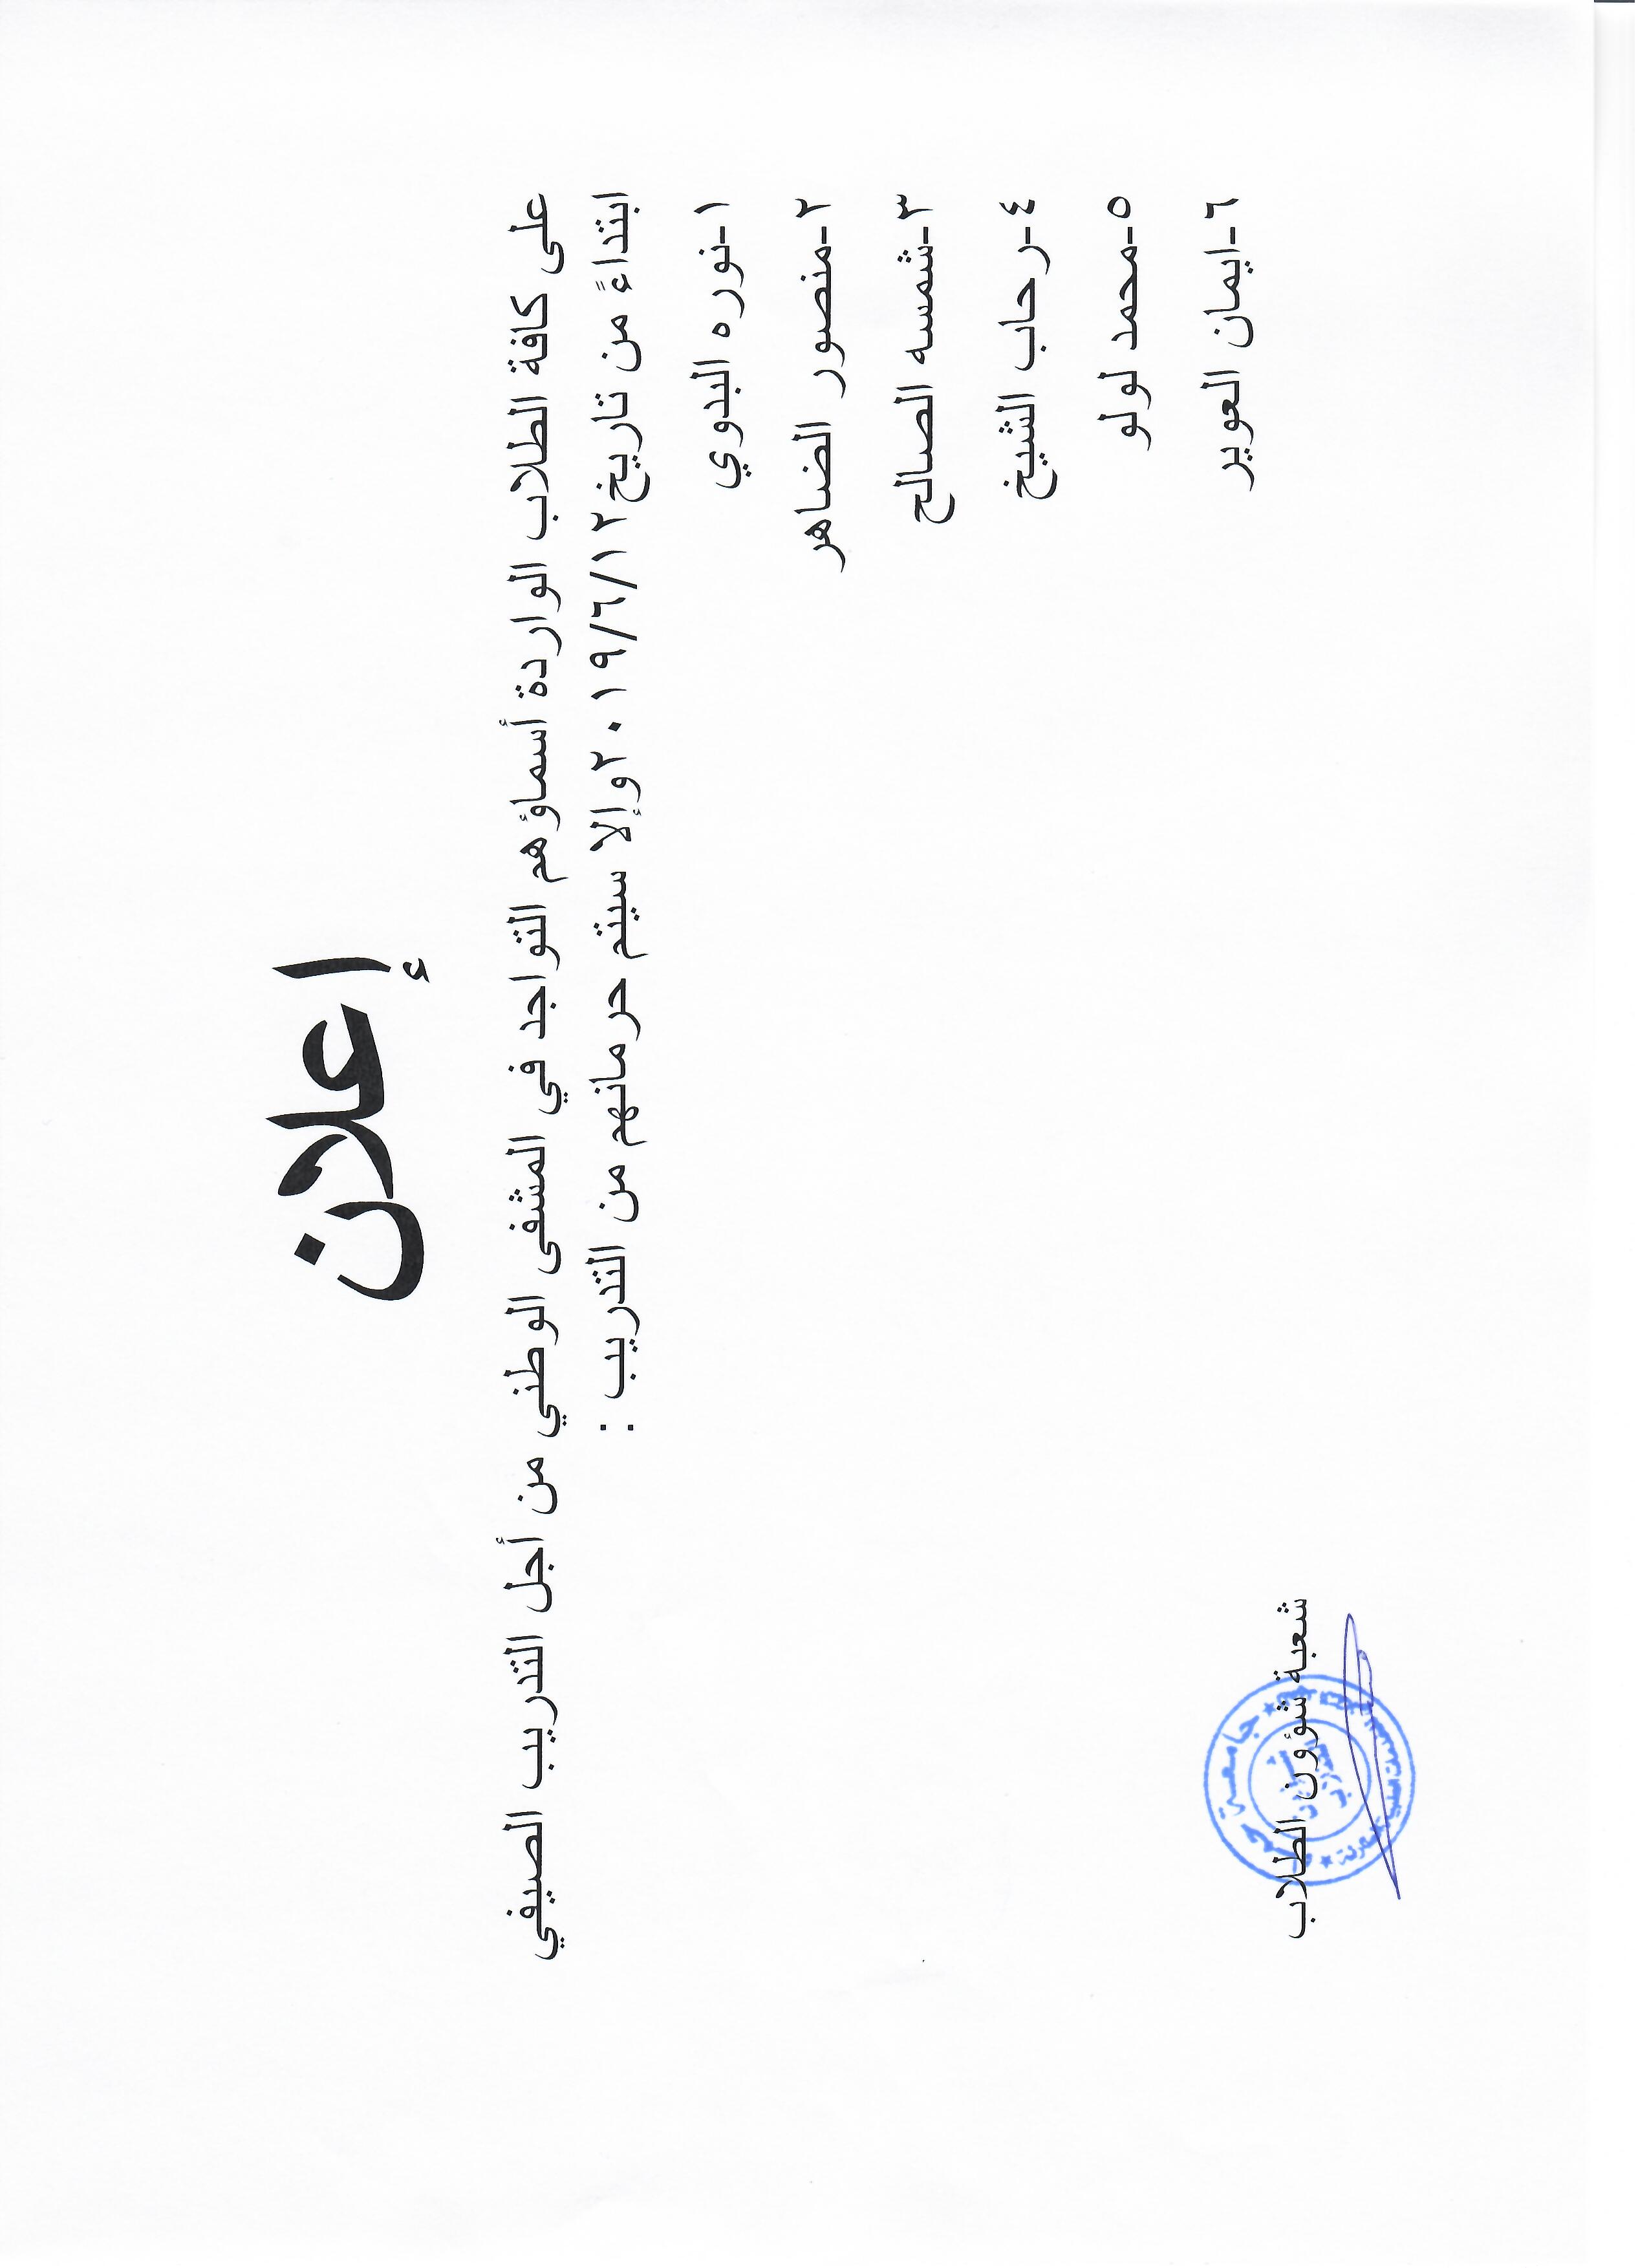 إعلان
على كافة الطلاب الواردة أسماؤهم التواجد في المشفى الوطني من أجل التدريب الصيفي
ابتداءً من تاريخ ٢٠١٩/٦/١٢ وإلا سيتم حرمانهم من التدريب :
١-نوره البدوي
٢-منصور الضاهر
٣-شمسه الصالح
٤-رحاب الشيخ
٥-محمد لولو
٦-ايمان العوير
شعبة شؤون الطلاب
جامعة